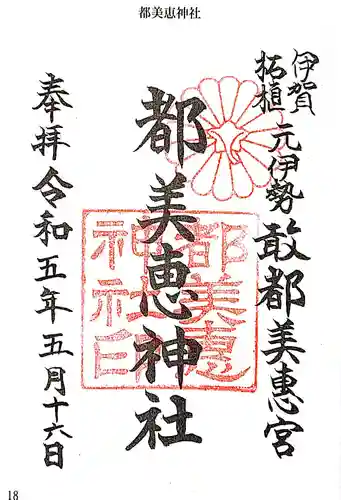 都美恵神社
伊賀
柘植
元伊勢敢都美恵宮
都美恵神社
都美恵
神社印
奉拝令和五年五月十六日
18